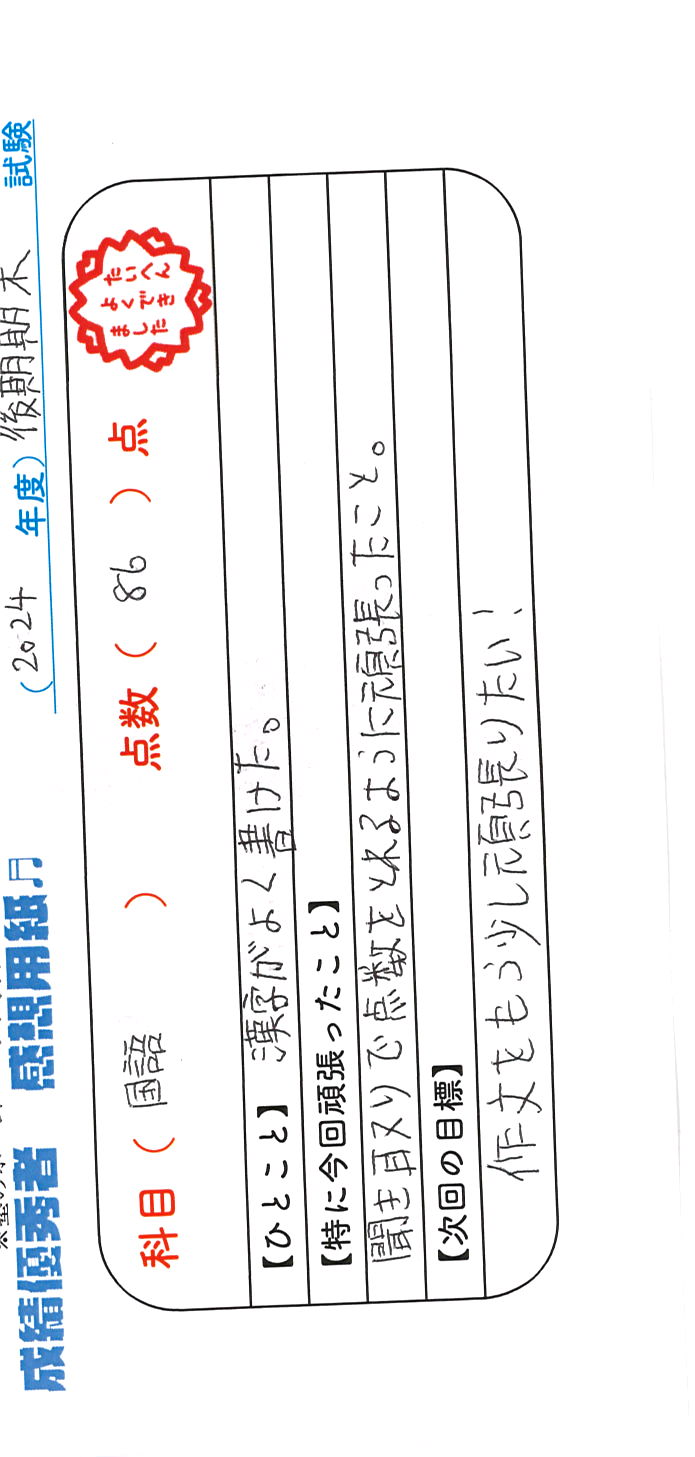 成績優秀者 感想用紙♫ (2024 年度) 後期期末 試験
科目 ( 国語 ) 点数 ( 86 ) 点
たいへん
よくでき
ました
【ひとこと】 漢字がよく書けた。
【特に今回頑張ったこと】
聞き取りで点数をとれるように頑張ったこと。
【次回の目標】
作文をもう少し頑張りたい!